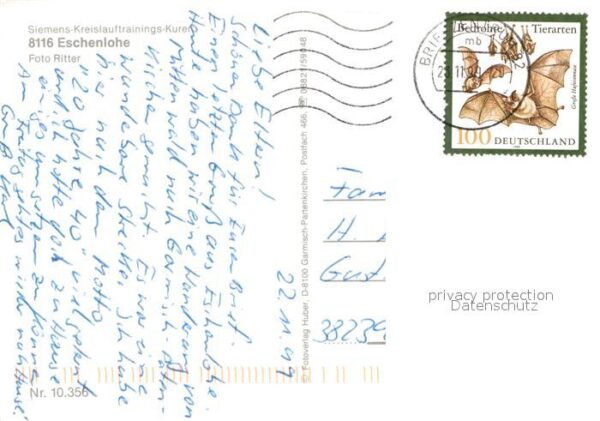 Siemens-Kreislauftrainings-Kuren
8116 Eschenlohe
Foto Ritter
Liebe Eltern!
Schönen Dank für Euren Brief.
Einen letzten Gruß aus Eschenlohe.
Heute haben wir eine Wanderung von
Mittenwald nach Garmisch-Parten-
kirchen gemacht. Es war eine
wunderbare Strecke. Ich habe
hier nach dem Motto
"20 Jahre 40" viel gelernt
und ich hoffe das zu Hause
einiges umsetzen zu können.
Am Freitag geht es wieder nach Hause.
Gruß
Nr. 10.356
22.11.99
© Fotoverlag Huber, D-8100 Garmisch-Partenkirchen, Postfach 466, 08821/59648
Fam
H.
Gust
38239
BRIEFZENTRUM
mb
Bedrohte Tierarten
Große Hufeisennase
100 DEUTSCHLAND
privacy protection
Datenschutz